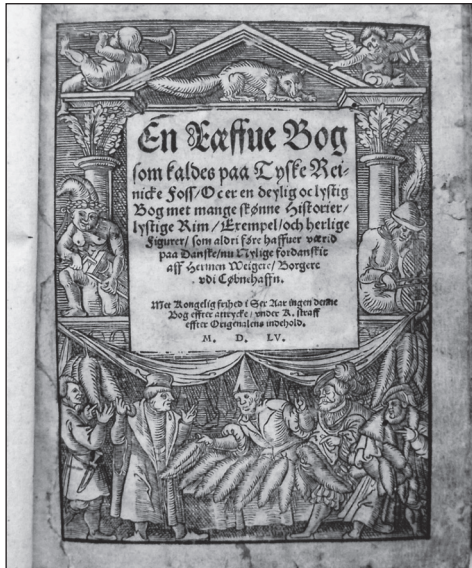 En Ræffue Bog
som kaldes paa Tyske Rei-
nicke Foss/ Oc er en deylig oc lystig
Bog met mange skønne Historier/
lystige Rim/ Exempel/ och herlige
Figurer/ som aldri føre haffuer værid
paa Danske/ nu Nylige fordanskit
aff Hermen Weigere/ Borgere
vdi Cøbnehaffn.
Met Kongelig frihed i Sex Aar ingen denne
Bog effter atrycke/ vnder K. straff
effter Originalens indehold.
M. D. LV.